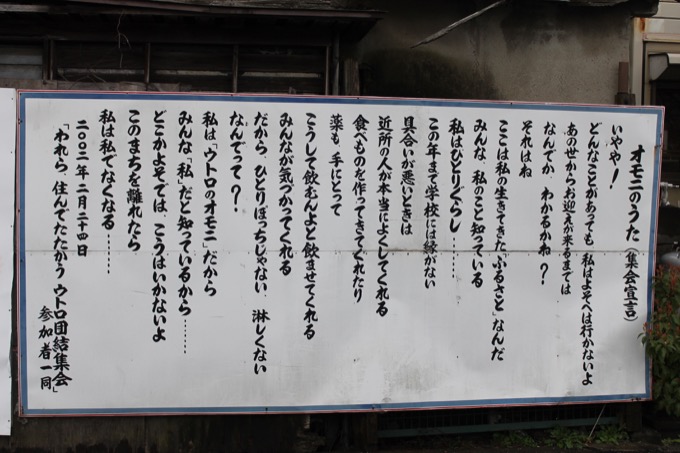 オモニのうた（集会宣言）
いやや！
どんなことがあっても、私はよそへは行かないよ
あの世からお迎えが来るまでは
なんでか、わかるかね？
それはね
ここは私の生きてきた「ふるさと」なんだ
みんな、私のこと知っている
私はひとりぐらし……
この年まで学校には縁がない
具合いが悪いときは
近所の人が本当によくしてくれる
食べものを作ってきてくれたり
薬も、手にとって
こうして飲むんよと飲ませてくれる
みんなが気づかってくれる
だから、ひとりぼっちじゃない、淋しくない
なんでって？
私は「ウトロのオモニ」だから
みんな「私」だと知っているから……
どこかよそでは、こうはいかないよ
このまちを離れたら
私は私でなくなる……
二〇〇二年二月二十四日
「われら、住んでたたかう ウトロ団結集会」
参加者一同